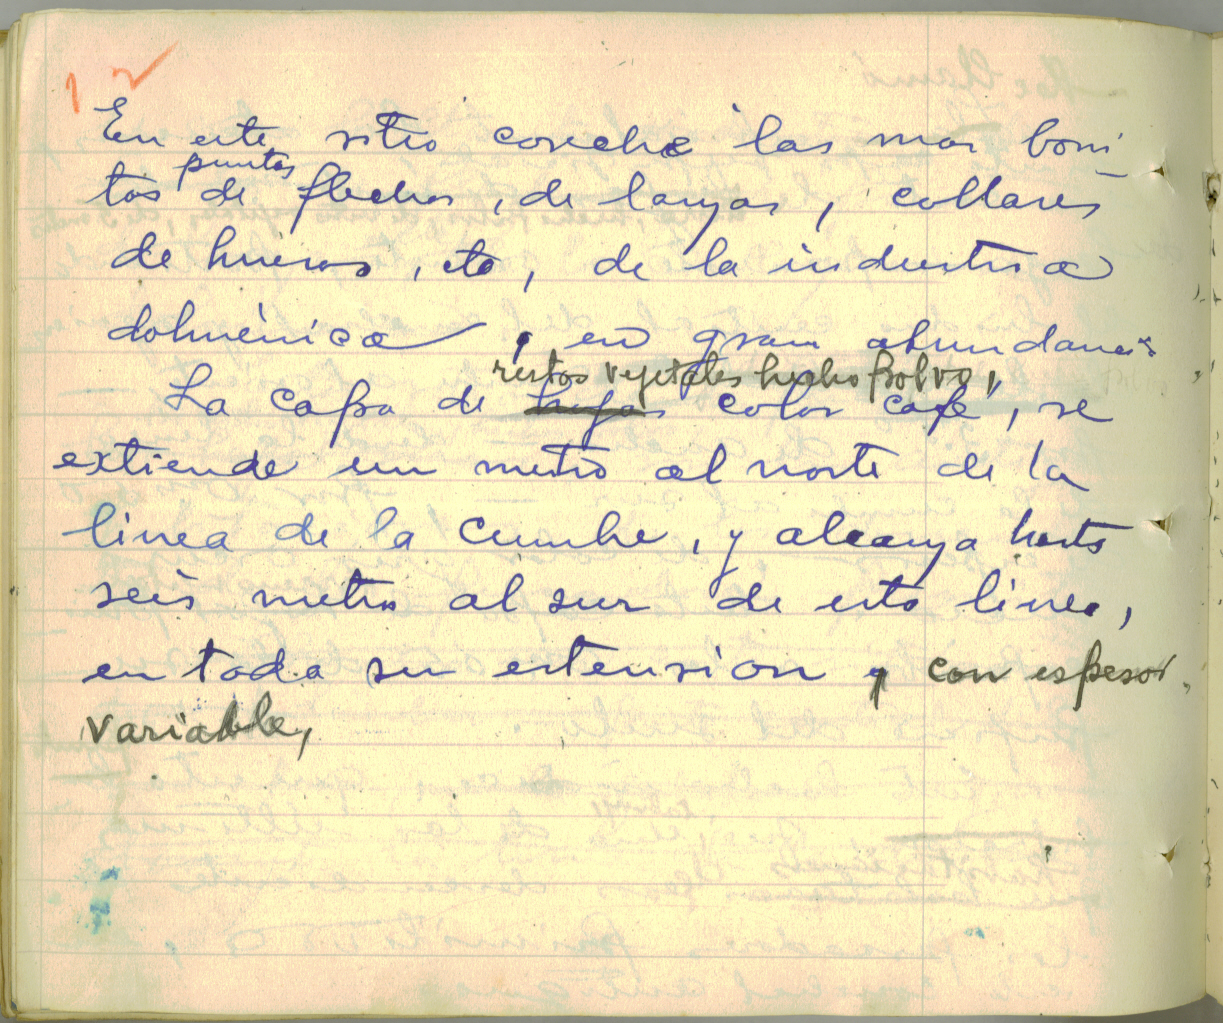 12
En este sitio coseche las mas boni
puntas
tas de flechas, de lanzas, collares
de huesos, etc, de la industria
dolménica, en gran abundancia
restos vejetales hecho polvo,
La capa de hojas color café, se
extiende un metro al norte de la
linea de la cumbre, y alcanza hasta
seis metros al sur de esta linea,
en toda su estension, con espesor
variable,